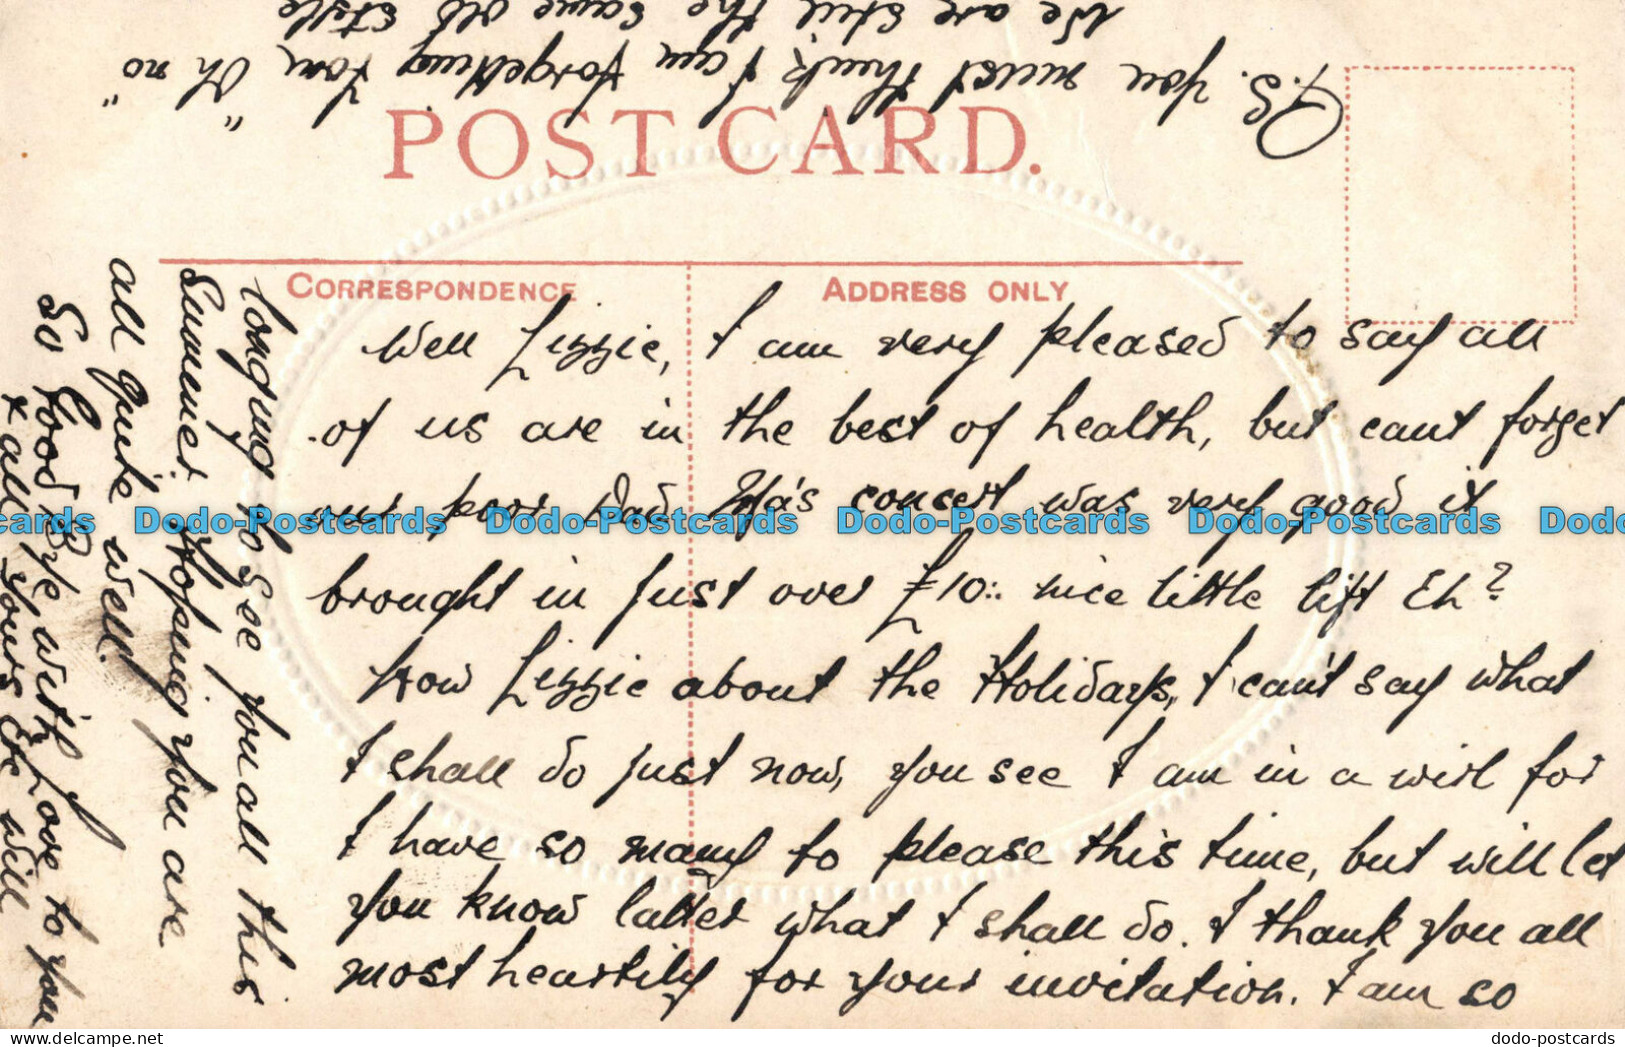 POST CARD.
CORRESPONDENCE
ADDRESS ONLY
Well Lizzie, I am very pleased to say all
of us are in the best of health, but cant forget
our poor Dad. concert was very good it
brought in just over £10:. nice little lift Eh?
Now Lizzie about the Holidays, I can't say what
I shall do just now, you see I am in a wirl for
I have so many to please this time, but will let
you know latter what I shall do. I thank you all
most heartily for your invitation. I am so
longing to see you all this
Summer. Hoping you are
all quite well.
So Good Bye with Love to you
x all yours Ete will
P.S. You must think I am forgetting You, "Oh no"
We are still the same old style
Dodo-Postcards Dodo-Postcards Dodo-Postcards Dodo-Postcards
dodo-postcards
delcampe.net